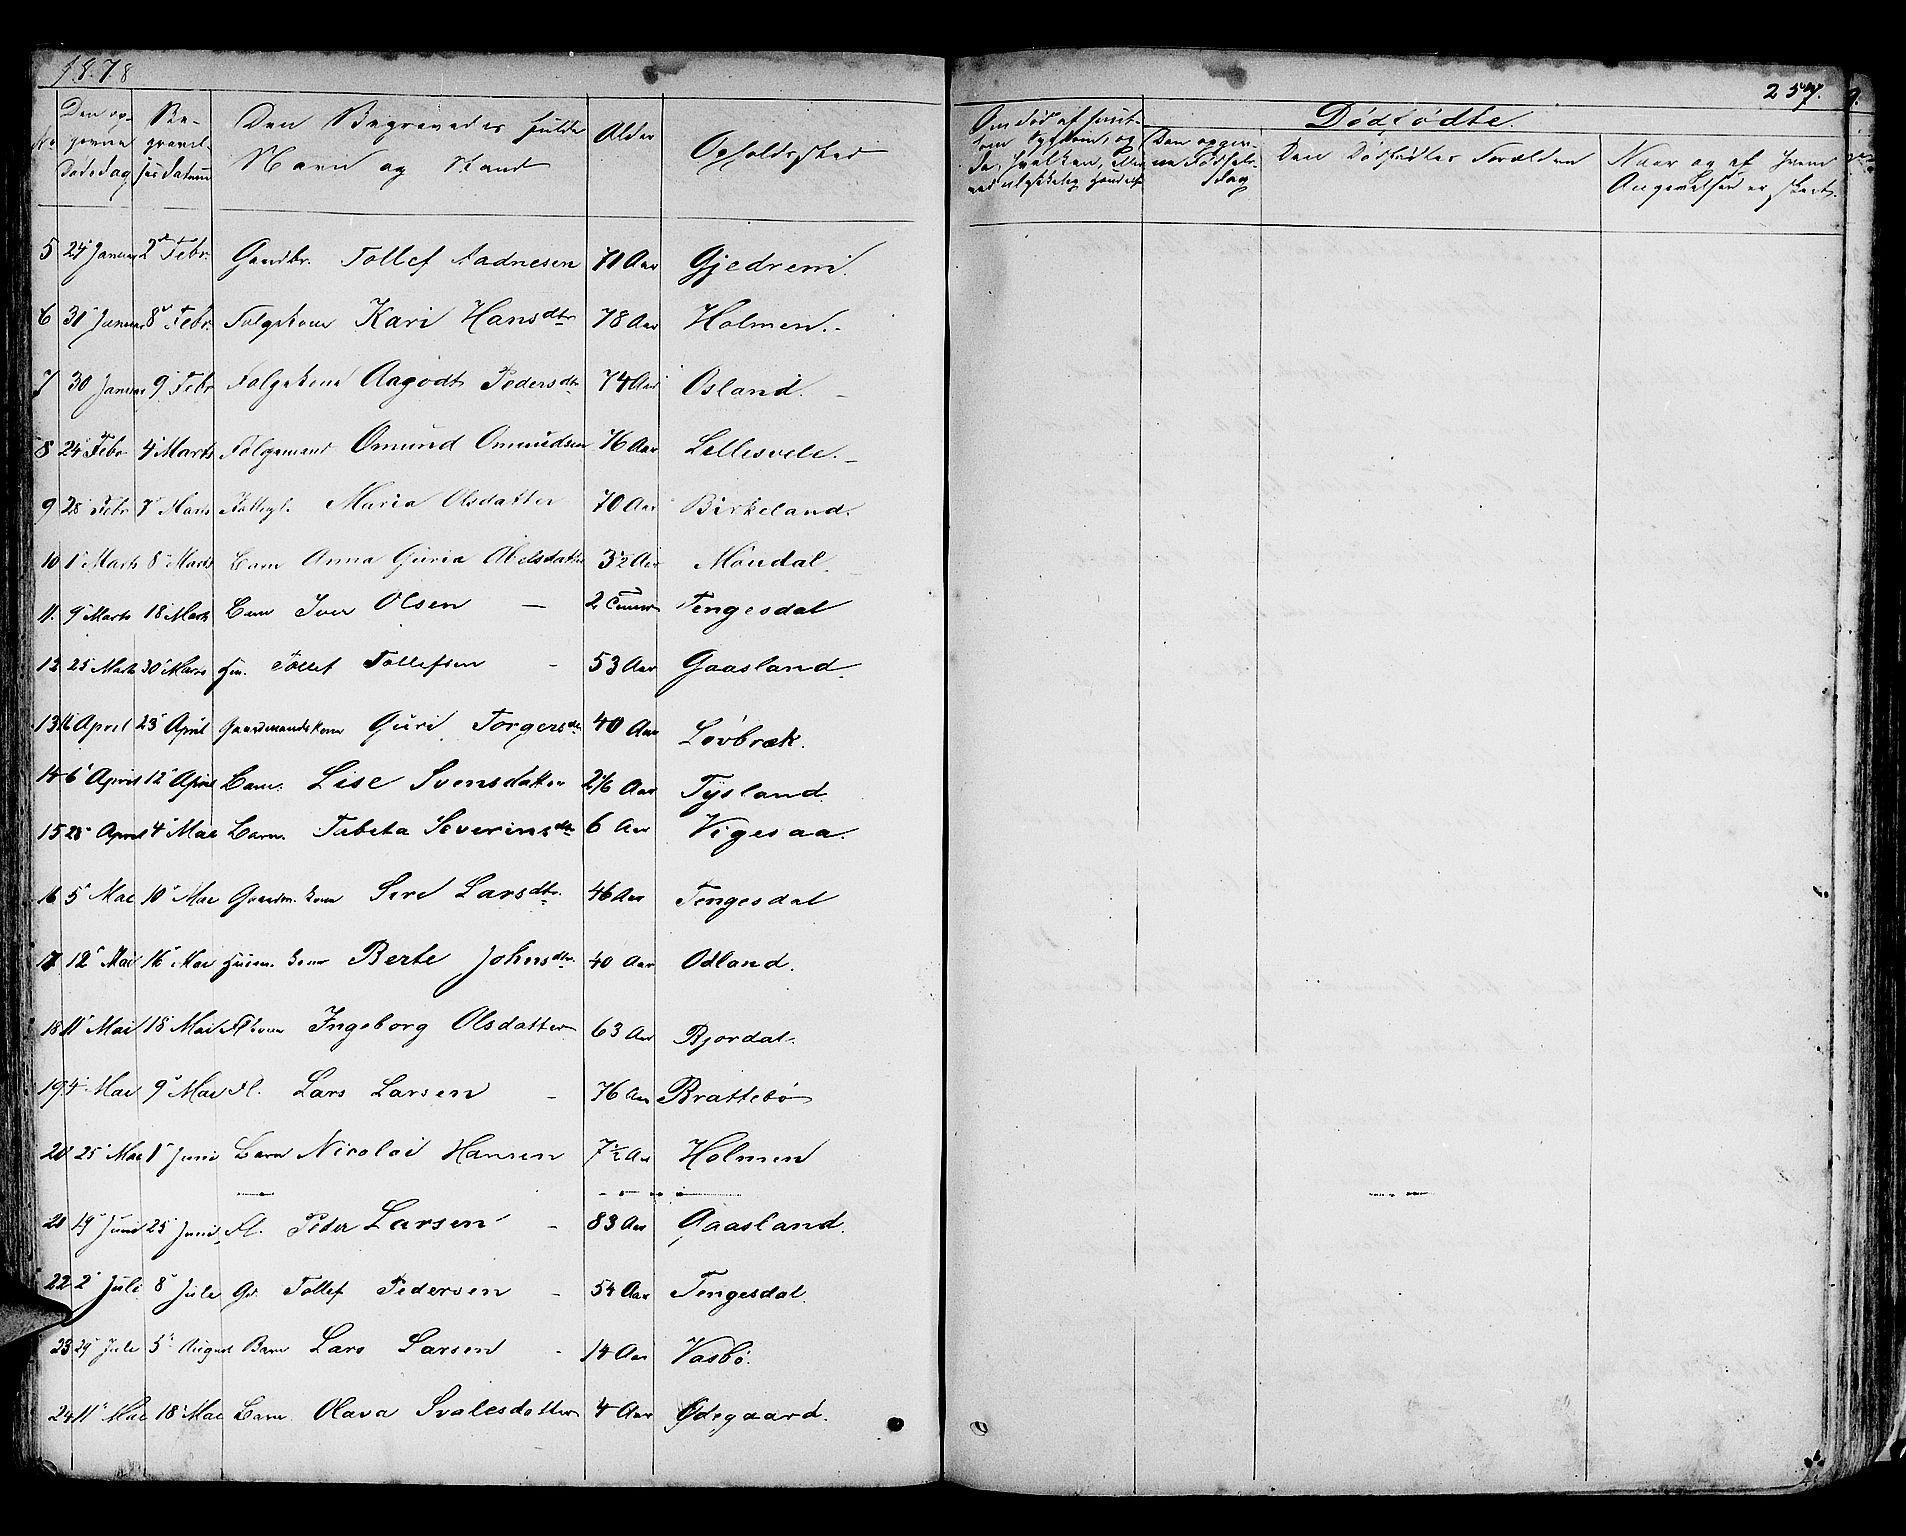 1878
No
Den op-
givne
Dødsdag
Be-
gravel-
sesdatum
Den Begravedes fulde
Navn og Stand
Alder
Opholdssted
5 24 Januar 2 Febr. Gaardbr. Tollef Aadnesen 71 Aar Gjedrem.
6 31 Januar 8 Febr. Folgekone Kari Hansdtr 78 Aar Holmen.
7 30 Januar 9 Febr Folgekone Aagodt Pedersdtr 74 Aar Osland.
8 24 Febr 4 Marts Folgemand Omund Omundsen 76 Aar Lillesvele.
9 28 Febr 7 Marts Maria Olsdatter 70 Aar Birkeland.
10 1 Marts 8 Marts Barn Anna Guria Abelsdatter 3½ Aar Møndal.
11. 9 Marts 18 Marts Barn Iver Olsen 2 Tengesdal
12 25 Marts 30 Marts Tollef Tollefsen 53 Aar Gaasland.
13 16 April 23 April Gaardmandskone Guri Torgersdtr 40 Aar Løvbræk.
14 6 April 12 April Barn. Lise Svensdatter 2 1/6 Aar Tysland
15 28 April 4 Mai Barn. Tabeta Severinsdtr 6 Aar Vigesaa.
16 5 Mai 10 Mai Gaardm. kone Siri Larsdtr. 46 Aar Tengesdal
17 12 Mai 16 Mai Husm. kone Berte Johnsdtr. 40 Aar Odland.
18 11 Mai 18 Mai Fl kone Ingeborg Olsdatter 63 Aar Bjordal.
19 4 Mai 9 Mai Fl. Lars Larsen 76 Aar Brattebø
20 25 Mai 1 Juni Barn Nicolai Hansen 7½ Aar Holmen
21 19 Juni 25 Juni Fl. Peder Larsen 83 Aar Gaasland.
22 2 Juli 8 Juli Gr. Tollef Pedersen 54 Aar Tengesdal.
23 29 Juli 5 August Barn Lars Larsen 14 Aar Vasbø.
24 11 Mai 18 Mai Barn. Olava Svalesdatter 4 Aar Ødegaard.
257.
Om død af smit-
som Sygdom, og
da hvilken, eller
ved ulykkelig Hændelse
Dødfødte.
Den opgiv-
ne Fødsels-
dag
Den Dødfødtes Forældre
Naar og af hvem
Angivelsen er skeet.